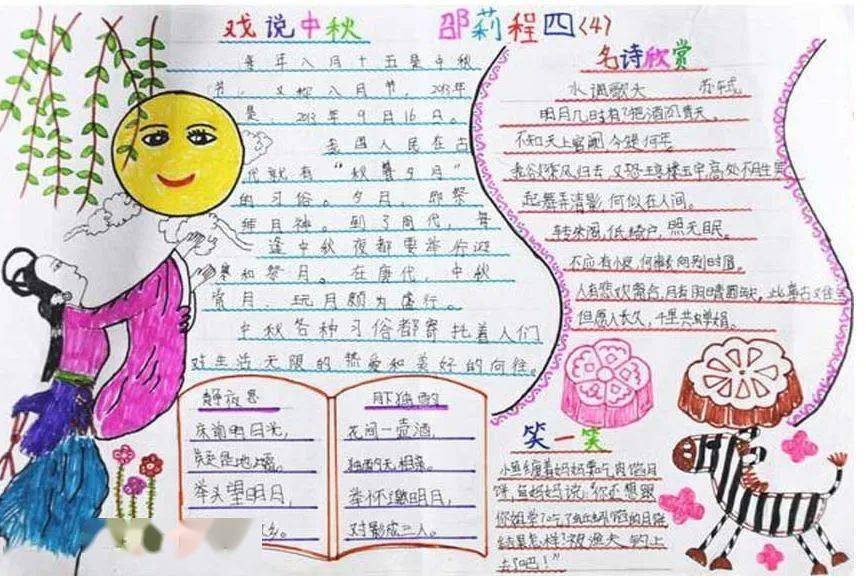 戏说中秋 邵莉程四(4)
每年八月十五是中秋
节,又称八月节,2013年
是,2013年9月16日。
我国人民在古
代就有“秋暮夕月”
的习俗。夕月,即祭
拜月神。到了周代,每
逢中秋夜都要举行迎
寒和祭月。在唐代,中秋
赏月、玩月颇为盛行。
中秋各种习俗都寄托着人们
对生活无限的热爱和美好的向往。
名诗欣赏
水调歌头 苏轼
明月几时有?把酒问青天。
不知天上宫阙,今夕是何年
我欲乘风归去,又恐琼楼玉宇,高处不胜寒
起舞弄清影,何似在人间。
转朱阁,低绮户,照无眠。
不应有恨,何事长向别时圆。
人有悲欢离合,月有阴晴圆缺,此事古
但愿人长久,千里共婵娟。
静夜思
床前明月光,
疑是地上霜。
举头望明月,
乡。
月下独酌
花间一壶酒,
独酌无相亲。
举杯邀明月,
对影成三人。
笑一笑
小鱼缠着妈妈要吃肉馅月
饼,鱼妈妈说,“你还想跟
你姐学?吃了蚯蚓馅的月饼
结果怎样?被渔夫钓上
去了吧!”